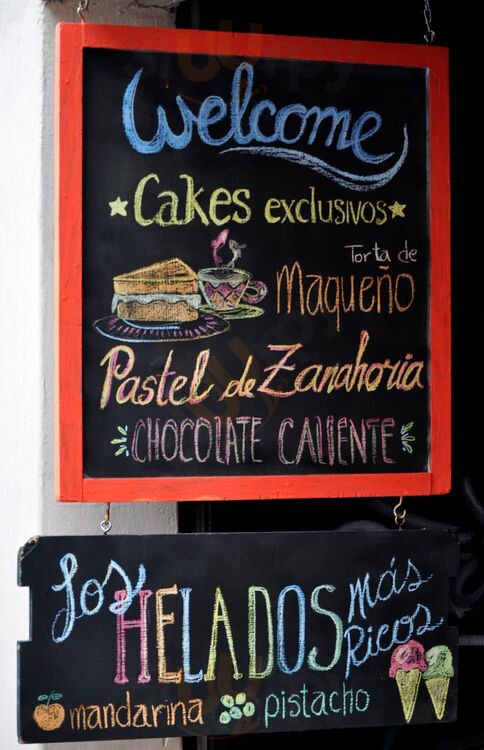 Welcome
Cakes exclusivos
Torta de
Maqueño
Pastel de Zanahoria
CHOCOLATE CALIENTE
Los HELADOS más
Ricos
mandarina pistacho